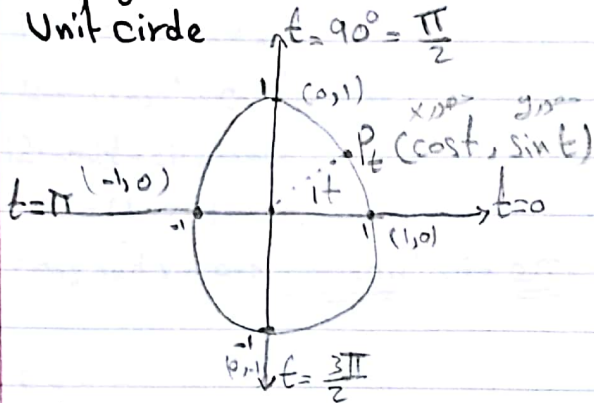 Unit circle
t=90°=π/2
1 (0,1)
P_t (cost, sint)
(-1,0)
t=π
t
t=0
-1
1 (1,0)
-1
(0,-1)
t=3π/2